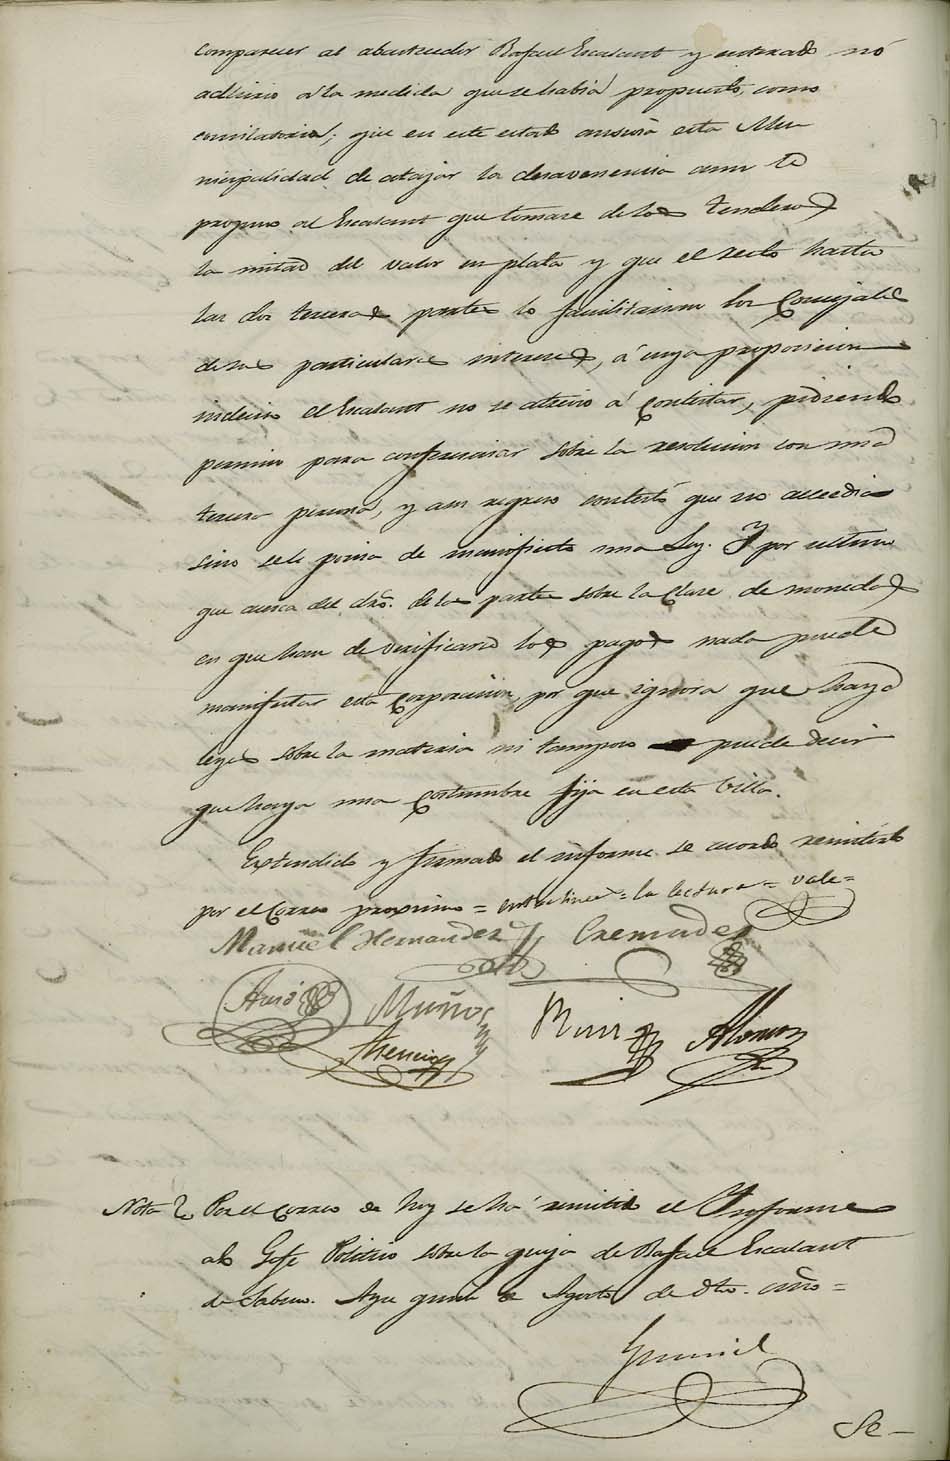 comparecer al abastecedor Rafael Escalant y enterado nó
adhirio á la medida que se habia propuesto, como
conciliatoria; que en este estado ansiosa esta Mu
nicipalidad de atajar la desavenencia aun le
propuso al Escalant que tomase de los tenderos
la mitad del valor en plata y que el resto hasta
las dos terceras partes lo facilitarian los Concejales
de sus particulares intereses, á cuya proposicion
indeciso el Escalant no se atrevio á contestar, pidiendo
permiso para conferenciar sobre la resolucion con una
tercera persona, y a su regreso contestó que no accedia
sino se le ponia de manifiesto una Ley. Y por ultimo
que acerca del dro. de las partes sobre la clase de monedas
en que han de verificarse los pagos nada puede
manifestar esta Corporacion, por que ignora que haya
leyes sobre la materia ni tampoco puede decir
que haya una costumbre fija en esta Villa.
Extendido y firmado el informe se acordo remitirlo
por el Correo proximo = entre lineas = la lectura = vale =
Manuel Hernandez Cremades
Asló Muños Ruiz Alonso
Asencio
Nota Por el Correo de hoy se ha remitido el Informe
al Gefe Politico sobre la queja de Rafael Escalant
de Sabuco. Aspe quince de Agosto de dho. año =
Se_